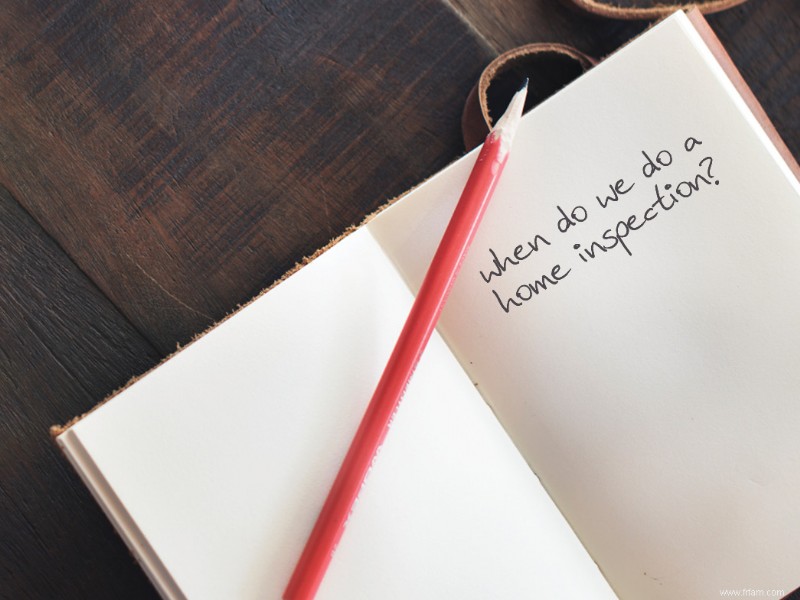 when do we do a
home inspection?
www.frfam.com